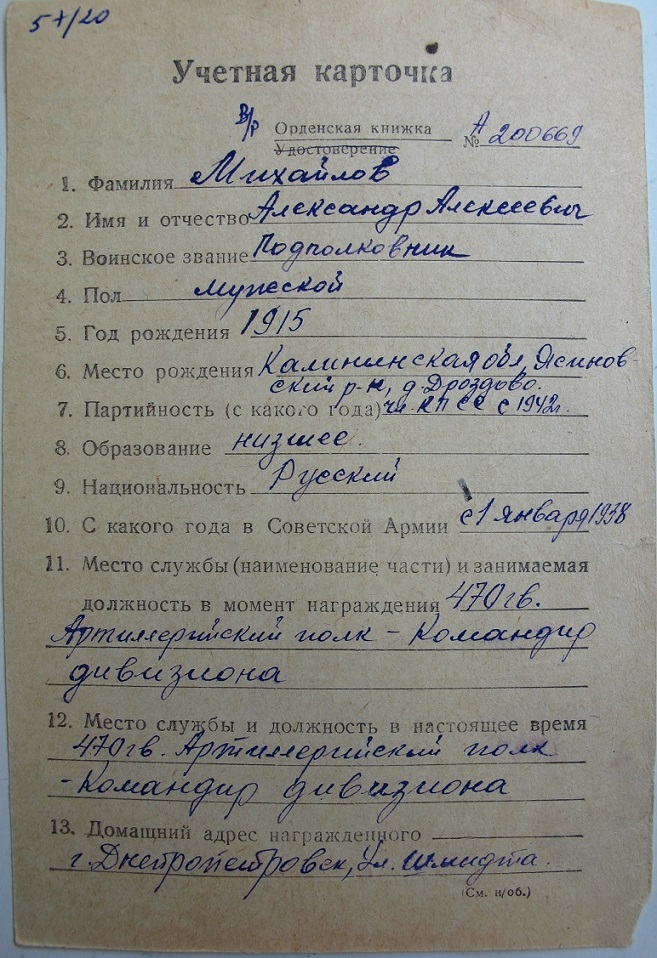 57/20
Учетная карточка
в/р Орденская книжка
Удостоверение № А 200669
1. Фамилия Михайлов
2. Имя и отчество Александр Алексеевич
3. Воинское звание Подполковник
4. Пол мужской
5. Год рождения 1915
6. Место рождения Калининская обл, Ясинов-
ский р-н, д. Дроздово.
7. Партийность (с какого года) чл. КПСС с 1942г.
8. Образование низшее.
9. Национальность Русский
10. С какого года в Советской Армии с 1 января 1938
11. Место службы (наименование части) и занимаемая
должность в момент награждения 470 гв.
Артиллерийский полк - Командир
дивизиона
12. Место службы и должность в настоящее время
470 гв. Артиллерийский полк
- Командир дивизиона
13. Домашний адрес награжденного
г. Днепропетровск, ул. Шмидта.
(См. н/об.)